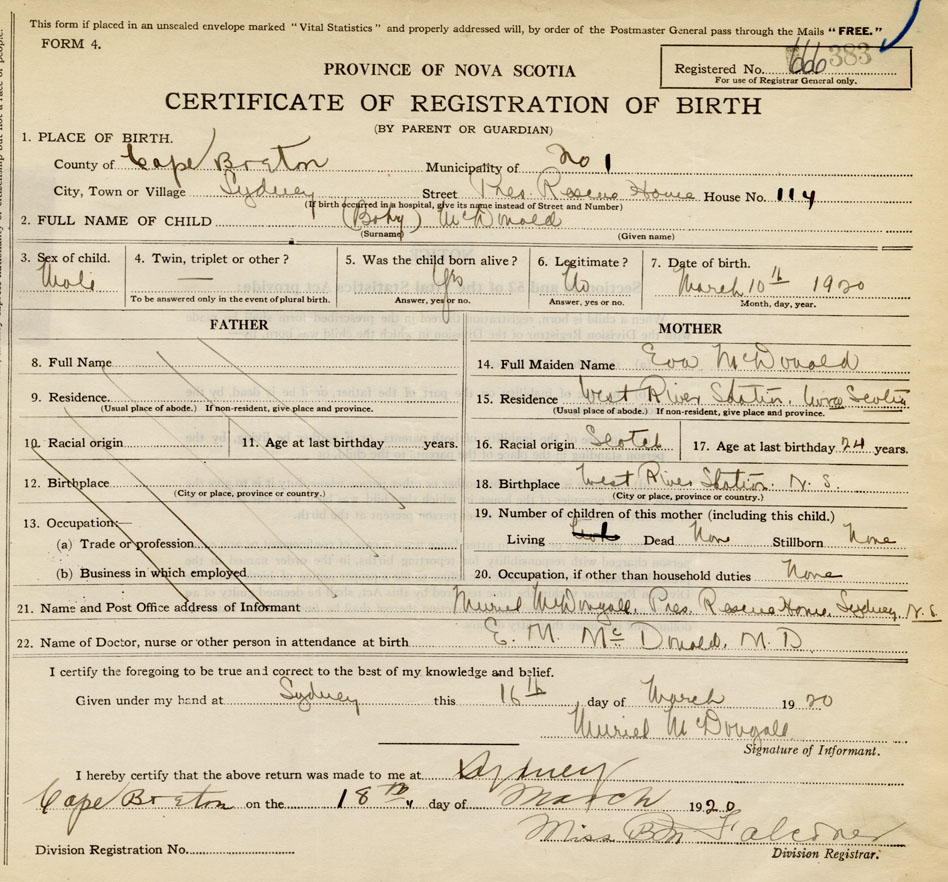 This form if placed in an unsealed envelope marked "Vital Statistics" and properly addressed will, by order of the Postmaster General pass through the Mails "FREE."
FORM 4.
Registered No. 666 383
For use of Registrar General only.
PROVINCE OF NOVA SCOTIA
CERTIFICATE OF REGISTRATION OF BIRTH
(BY PARENT OR GUARDIAN)
1. PLACE OF BIRTH.
County of Cape Breton Municipality of No 1
City, Town or Village Sydney Street Pres. Rescue Home House No. 114
(If birth occurred in a hospital, give its name instead of Street and Number)
2. FULL NAME OF CHILD (Baby) McDonald
(Surname) (Given name)
3. Sex of child. 4. Twin, triplet or other? 5. Was the child born alive? 6. Legitimate? 7. Date of birth.
Male — Yes No March 10th 1920
To be answered only in the event of plural birth. Answer, yes or no. Answer, yes or no. Month, day, year.
FATHER MOTHER
8. Full Name 14. Full Maiden Name Eva McDonald
9. Residence. 15. Residence West River Station, Nova Scotia
(Usual place of abode.) If non-resident, give place and province. (Usual place of abode.) If non-resident, give place and province.
10. Racial origin 11. Age at last birthday years. 16. Racial origin Scotch 17. Age at last birthday 24 years.
12. Birthplace 18. Birthplace West River Station. N. S.
(City or place, province or country.) (City or place, province or country.)
13. Occupation:— 19. Number of children of this mother (including this child.)
(a) Trade or profession Living Dead None Stillborn None
(b) Business in which employed 20. Occupation, if other than household duties None
21. Name and Post Office address of Informant Muriel McDougall, Pres. Rescue Home, Sydney, N. S
22. Name of Doctor, nurse or other person in attendance at birth E. M. McDonald, M. D.
I certify the foregoing to be true and correct to the best of my knowledge and belief.
Given under my hand at Sydney this 16th day of March 1920
Muriel McDougall
Signature of Informant.
I hereby certify that the above return was made to me at Sydney
Cape Breton on the 18th day of March 1920
Miss B M Falconer
Division Registration No. Division Registrar.